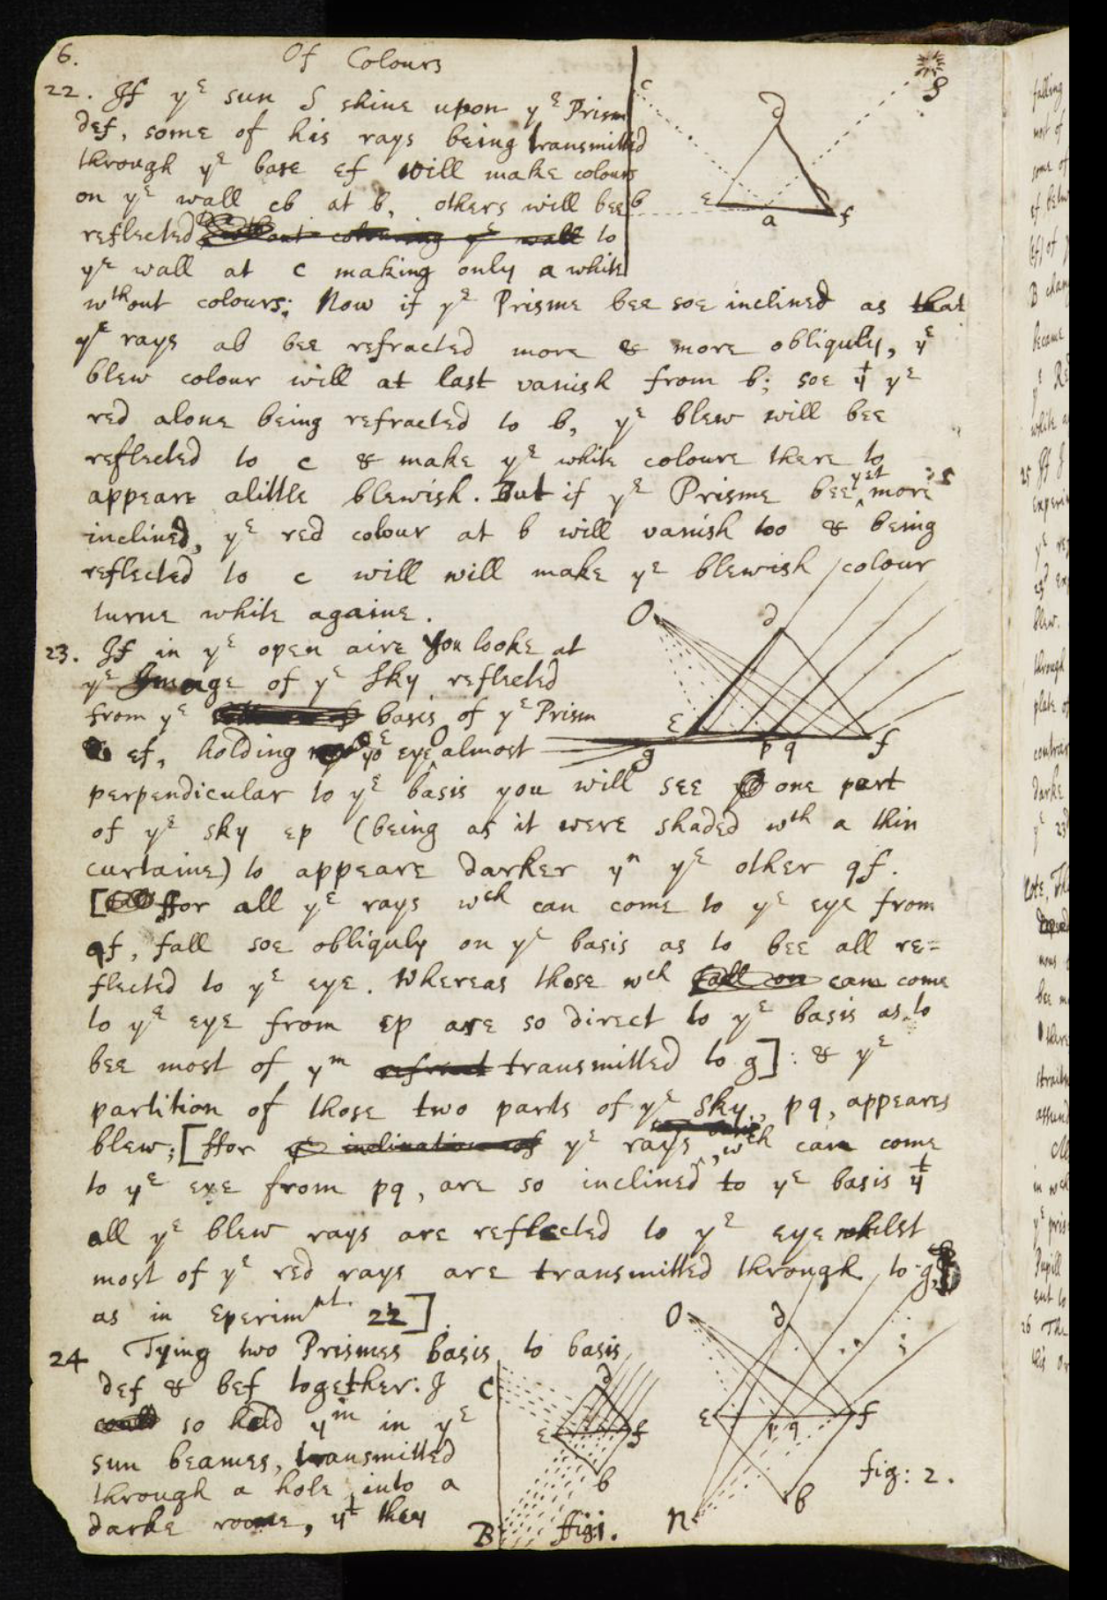 6.
Of Colours
22. If yᵉ sun S shine upon yᵉ Prism
def, some of his rays being transmitted
through yᵉ base ef will make colours
on yᵉ wall cb at b, others will bee
reflected to
yᵉ wall at c making only a white
wᵗʰout colours; Now if yᵉ Prisme bee soe inclined as that
yᵉ rays ab bee refracted more & more obliquly, yᵉ
blew colour will at last vanish from b; soe yᵗ yᵉ
red alone being refracted to b, yᵉ blew will bee
reflected to c & make yᵉ white coloure there to
appeare alittle blewish. But if yᵉ Prisme bee yet more
inclined, yᵉ red colour at b will vanish too & being
reflected to c will will make yᵉ blewish colour
turne white againe.
23. If in yᵉ open aire you looke at
yᵉ Image of yᵉ sky reflected
from yᵉ basis of yᵉ Prism
ef, holding yoᵉ eye O almost
perpendicular to yᵉ basis you will see one part
of yᵉ sky ep (being as it were shaded wᵗʰ a thin
curtaine) to appeare darker yⁿ yᵉ other qf.
[ffor all yᵉ rays wᶜʰ can come to yᵉ eye from
qf, fall soe obliquly on yᵉ basis as to bee all re=
flected to yᵉ eye. Whereas those wᶜʰ fall on can come
to yᵉ eye from ep are so direct to yᵉ basis as to
bee most of yᵐ transmitted to g]: & yᵉ
partition of those two parts of yᵉ sky, pq, appeares
blew; [ffor inclination of yᵉ rays, wᶜʰ can come
to yᵉ eye from pq, are so inclined to yᵉ basis yᵗ
all yᵉ blew rays are reflected to yᵉ eye whilst
most of yᵉ red rays are transmitted through to g,
as in Eperimⁿᵗ 22].
24 Tying two Prismes basis to basis
def & bef together. I
so held yᵐ in yᵉ
sun beames, transmitted
through a hole into a
darke roome, yᵗ they
c
b
d
e
a
f
S
O
d
e
g
p q
f
C
d
e
f
b
B
fig: 1.
O
d
e
p q
f
b
n
fig: 2.